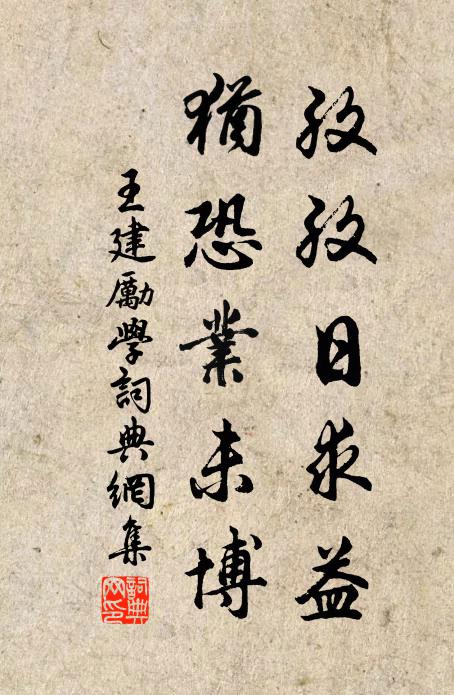 孜孜日求益
猶恐業未博
王建勵學詞典網集
詞典網印